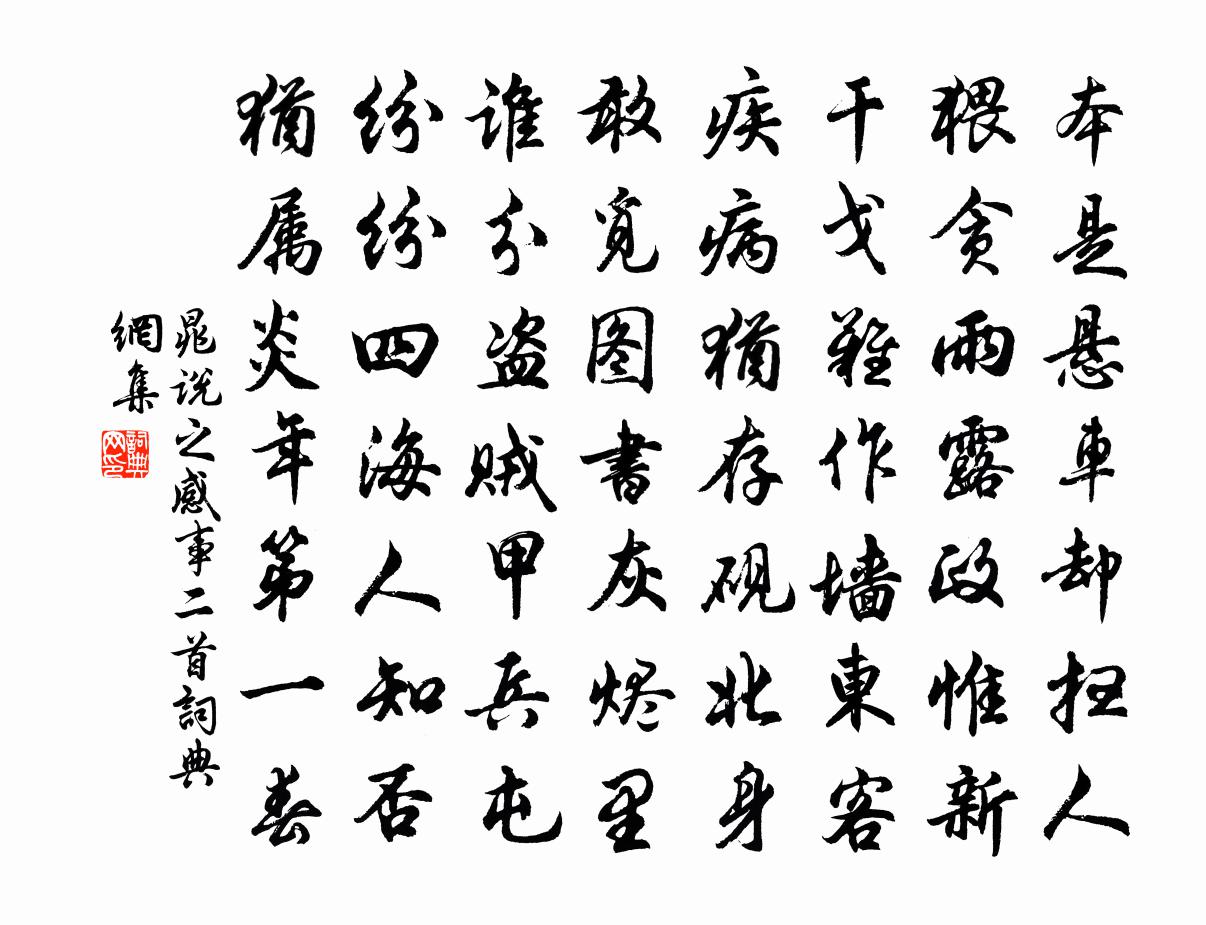 本是悬車却扫人
猥贪雨露政惟新
干戈难作墙東客
疾病犹存砚北身
敢觅图書灰烬里
谁分盗贼甲兵屯
纷纷四海人知否
犹属炎年第一春
晁说之感事二首詞典
網集
詞典
网印